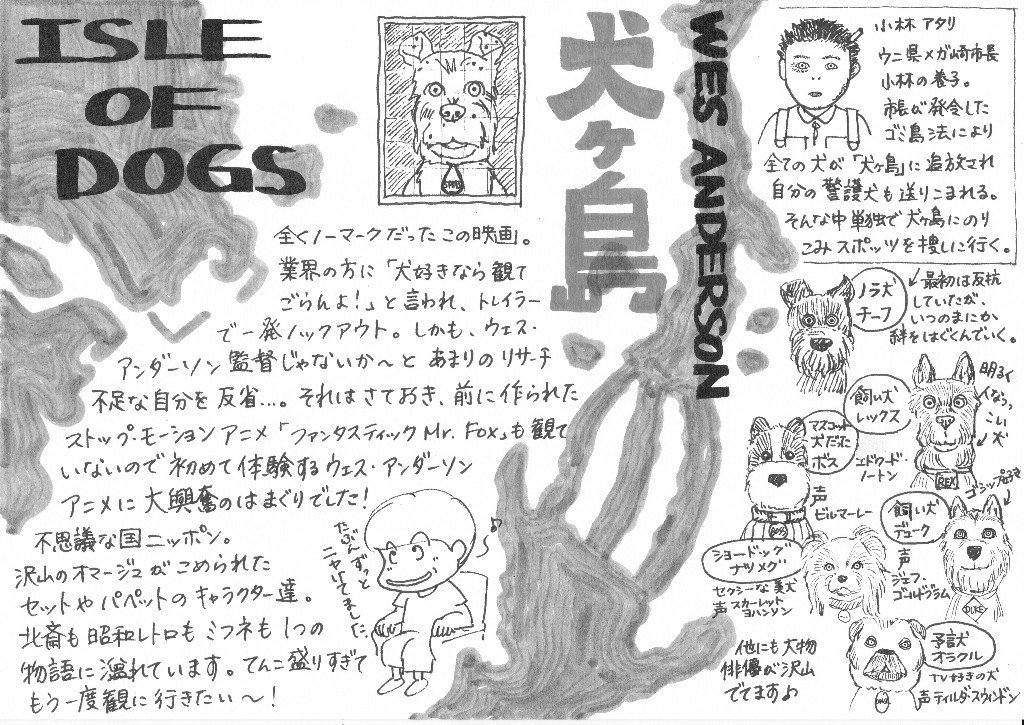 ISLE
OF
DOGS
犬ヶ島
WES ANDERSON
全くノーマークだったこの映画。
業界の方に「犬好きなら観て
ごらんよ!」と言われ、トレイラー
で一発ノックアウト。しかも、ウェス・
アンダーソン監督じゃないか〜と あまりのリサーチ
不足な自分を反省…。それはさておき、前に作られた
ストップ・モーションアニメ「ファンタスティックMr. Fox」も観て
いないので初めて体験するウェス・アンダーソン
アニメに大興奮のはまぐりでした!
不思議な国ニッポン。
沢山のオマージュがこめられた
セットやパペットのキャラクター達。
北斎も昭和レトロもミフネも1つの
物語に溢れています。てんこ盛りすぎて
もう一度観に行きたい〜!
たぶんずっと
ニヤけてました
小林 アタリ
ウニ県メガ崎市長
小林の養子。
市長が発令した
ゴミ島法により
全ての犬が「犬ヶ島」に追放され
自分の警護犬も送りこまれる。
そんな中単独で犬ヶ島にのり
こみスポッツを捜しに行く。
ノラ犬
チーフ
最初は反抗
していたが、
いつのまにか
絆をはぐくんでいく。
飼い犬
レックス
明るく
人なつっ
こい
犬
エドワード・
ノートン
REX
マスコット
犬だた
ボス
声
ビルマーレー
飼い犬
デューク
ゴシップ好き
声
ジェフ・
ゴールドブラム
DUKE
ショードッグ
ナツメグ
セクシーな美犬
声 スカーレット
ヨハンソン
予言犬
オラクル
TV好きの犬
声 ティルダ・スウィントン
他にも大物
俳優が沢山
でてます♪